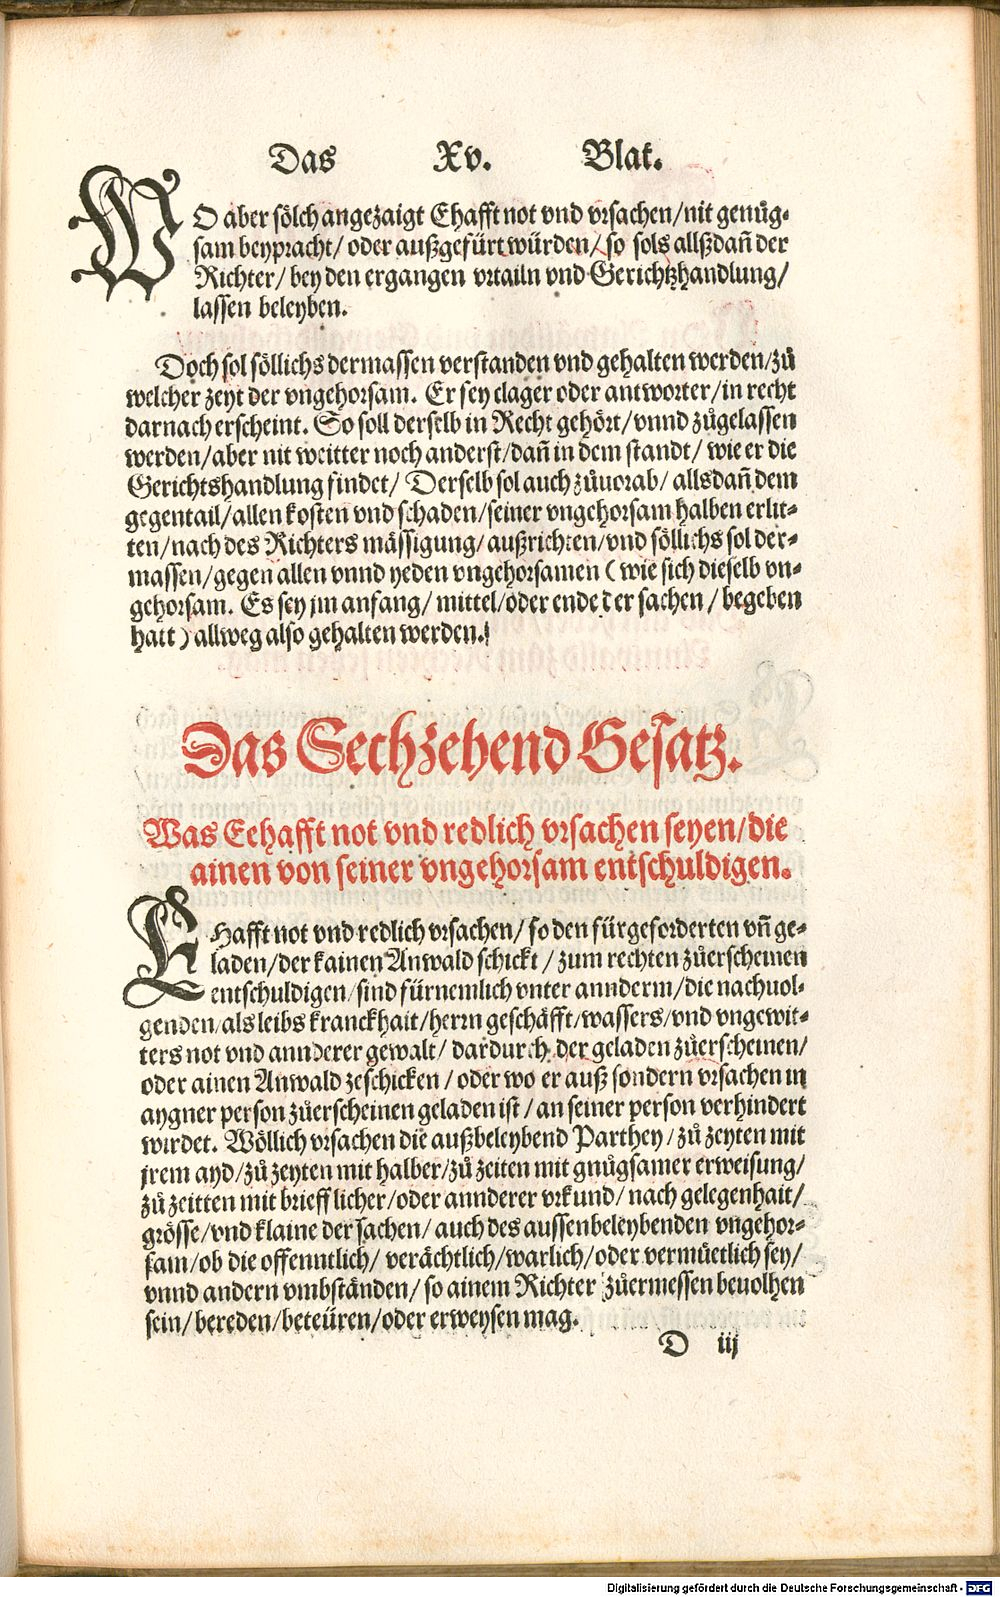 Das Xv. Blat.
WO aber sölch angezaigt Ehafft not vnd vrsachen/nit genůg-
sam beypracht/ oder außgefürt würden/ so sols allßdañ der
Richter/ bey den ergangen vrtailn vnd Gerichtzhandlung/
lassen beleyben.
Doch sol söllichs dermassen verstanden vnd gehalten werden/zů
welcher zeyt der vngehorsam. Er sey clager oder antworter/in recht
darnach erscheint. So soll derselb in Recht gehört/vnnd zůgelassen
werden/aber nit weitter noch anderst/dañ in dem standt/ wie er die
Gerichtshandlung findet/ Derselb sol auch zůuorab/ allsdañ dem
gegentail/allen kosten vnd schaden/seiner vngehorsam halben erlit-
ten/nach des Richters mässigung/außrichten/vnd söllichs sol der-
massen/gegen allen vnnd yeden vngehorsamen (wie sich dieselb vn-
gehorsam. Es sey jm anfang/ mittel/oder ende der sachen/begeben
hatt) allweg also gehalten werden.
Das Sechzehend Gesatz.
Was Eehafft not vnd redlich vrsachen seyen/die
ainen von seiner vngehorsam entschuldigen.
EHafft not vnd redlich vrsachen/ so den fürgeforderten vñ ge-
laden/der kainen Anwald schickt/ zum rechten zůerscheinen
entschuldigen/sind fürnemlich vnter annderm/die nachuol-
genden/als leibs kranckhait/herrn geschäfft/wassers/vnd vngewit-
ters not vnd annderer gewalt/ dardurch der geladen zůerscheinen/
oder ainen Anwald zeschicken/oder wo er auß sondern vrsachen in
aygner person zůerscheinen geladen ist/an seiner person verhindert
wirdet. Wöllich vrsachen die außbeleybend Parthey/zů zeyten mit
jrem ayd/zů zeyten mit halber/zů zeiten mit gnůgsamer erweisung/
zů zeitten mit briefflicher/oder annderer vrkund/ nach gelegenhait/
grösse/vnd klaine der sachen/ auch des aussenbeleybenden vngehor-
sam/ob die offenntlich/ verächtlich/warlich/oder vermüetlich sey/
vnnd andern vmbständen/ so ainem Richter zůermessen beuolhen
sein/bereden/beteüren/oder erweysen mag.
D iij
Digitalisierung gefördert durch die Deutsche Forschungsgemeinschaft - DFG